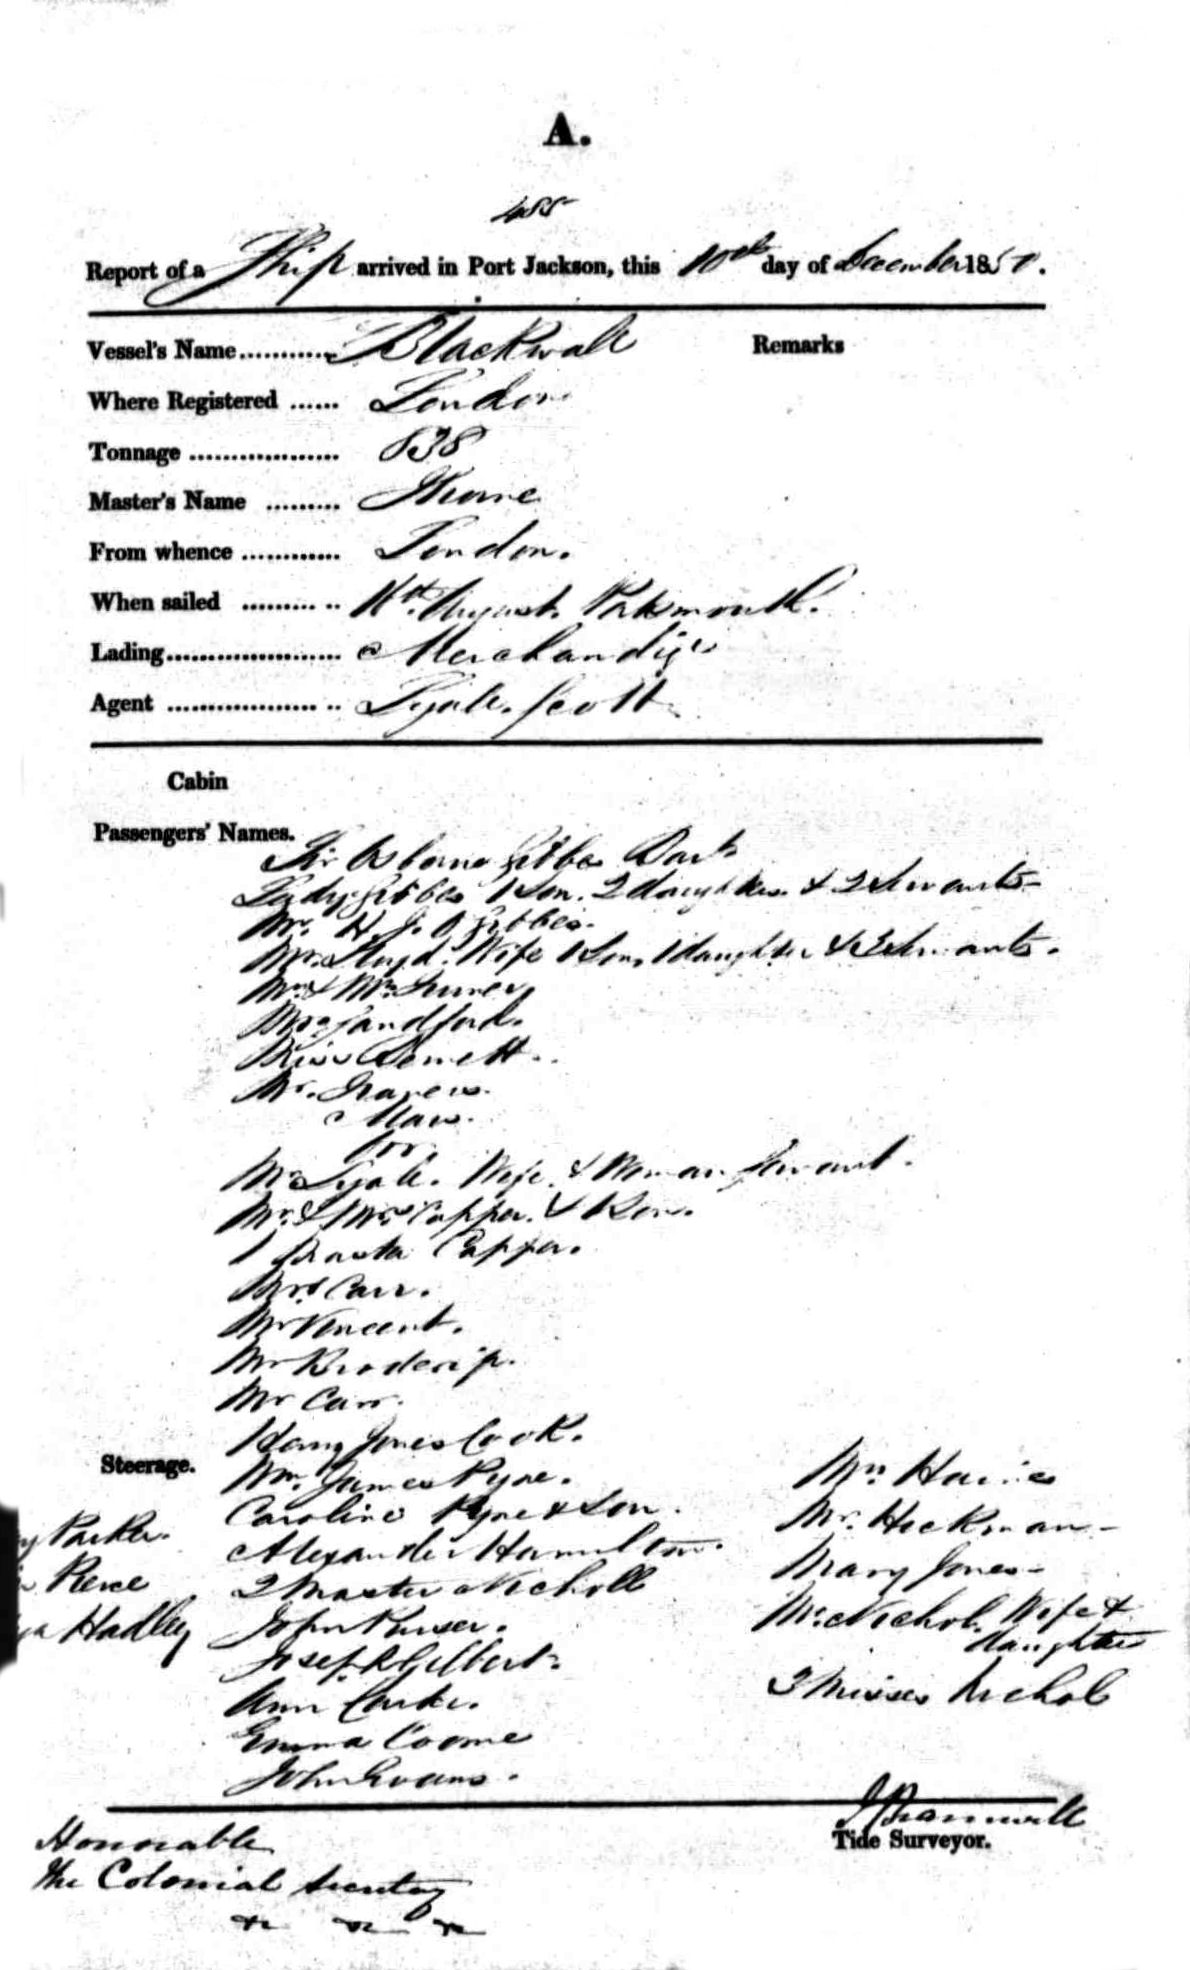 A.
488
Report of a Ship arrived in Port Jackson, this 10th day of December 1850.
Vessel's Name Blackwall
Remarks
Where Registered London
Tonnage 838
Master's Name Thorne
From whence London.
When sailed August. Portsmouth.
Lading Merchandize
Agent Lyall. Scott
Cabin
Passengers' Names.
Sir Osborne Gibbes Bart
Lady Gibbes 1 Son. 2 daughters & 2 Servants
Mr. H. J. O Gibbes.
Mr. Lloyd. Wife 1 Son, 1 daughter & 2 Servants.
Mr. & Mrs
Mrs Sandford.
Miss
Mr. Graves.
Maw.
Mr Lyall. Wife. & Woman Servant.
Mr. & Mrs Capper. & Son.
1 Master Capper.
Mrs Carr.
Mr Vincent.
Mr Broderip.
Mr Carr.
Steerage.
Henry Jones Cook.
Wm. James Pyne.
Caroline Pyne & Son.
Alexander Hamilton.
2 Master Nicholl
John Purser.
Joseph Gilbert.
Ann Clarke.
Emma Coome
John Evans.
Parker.
Pierce
Hadley
Mrs
Mr. Hickman
Mary Jones
Mr. Nichol. Wife &
daughter
2 Misses Nichol
J Bramwell
Tide Surveyor.
Honorable
The Colonial Secretary
&c &c &c